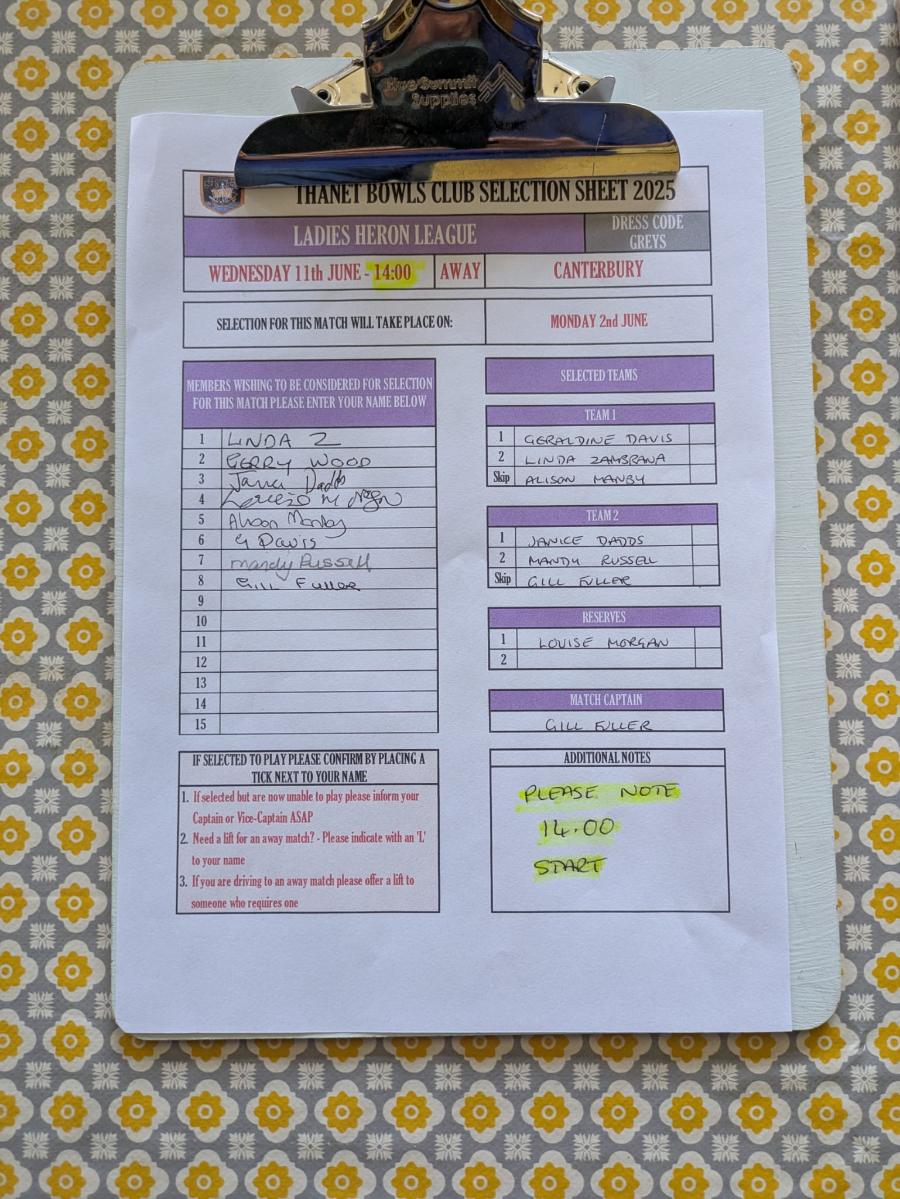 Blue Summit
Supplies
THANET BOWLS CLUB SELECTION SHEET 2025
LADIES HERON LEAGUE
DRESS CODE
GREYS
WEDNESDAY 11th JUNE - 14:00
AWAY
CANTERBURY
SELECTION FOR THIS MATCH WILL TAKE PLACE ON:
MONDAY 2nd JUNE
MEMBERS WISHING TO BE CONSIDERED FOR SELECTION
FOR THIS MATCH PLEASE ENTER YOUR NAME BELOW
1 LINDA Z
2 GERRY WOOD
3 Janice Dadds
4
5 Alison Manby
6 G Davis
7 Mandy Russell
8 GILL FULLER
9
10
11
12
13
14
15
SELECTED TEAMS
TEAM 1
1 GERALDINE DAVIS
2 LINDA ZAMBRANA
Skip ALISON MANBY
TEAM 2
1 JANICE DADDS
2 MANDY RUSSELL
Skip GILL FULLER
RESERVES
1 LOUISE MORGAN
2
MATCH CAPTAIN
GILL FULLER
IF SELECTED TO PLAY PLEASE CONFIRM BY PLACING A
TICK NEXT TO YOUR NAME
1. If selected but are now unable to play please inform your
Captain or Vice-Captain ASAP
2. Need a lift for an away match? - Please indicate with an 'L'
to your name
3. If you are driving to an away match please offer a lift to
someone who requires one
ADDITIONAL NOTES
PLEASE NOTE
14.00
START